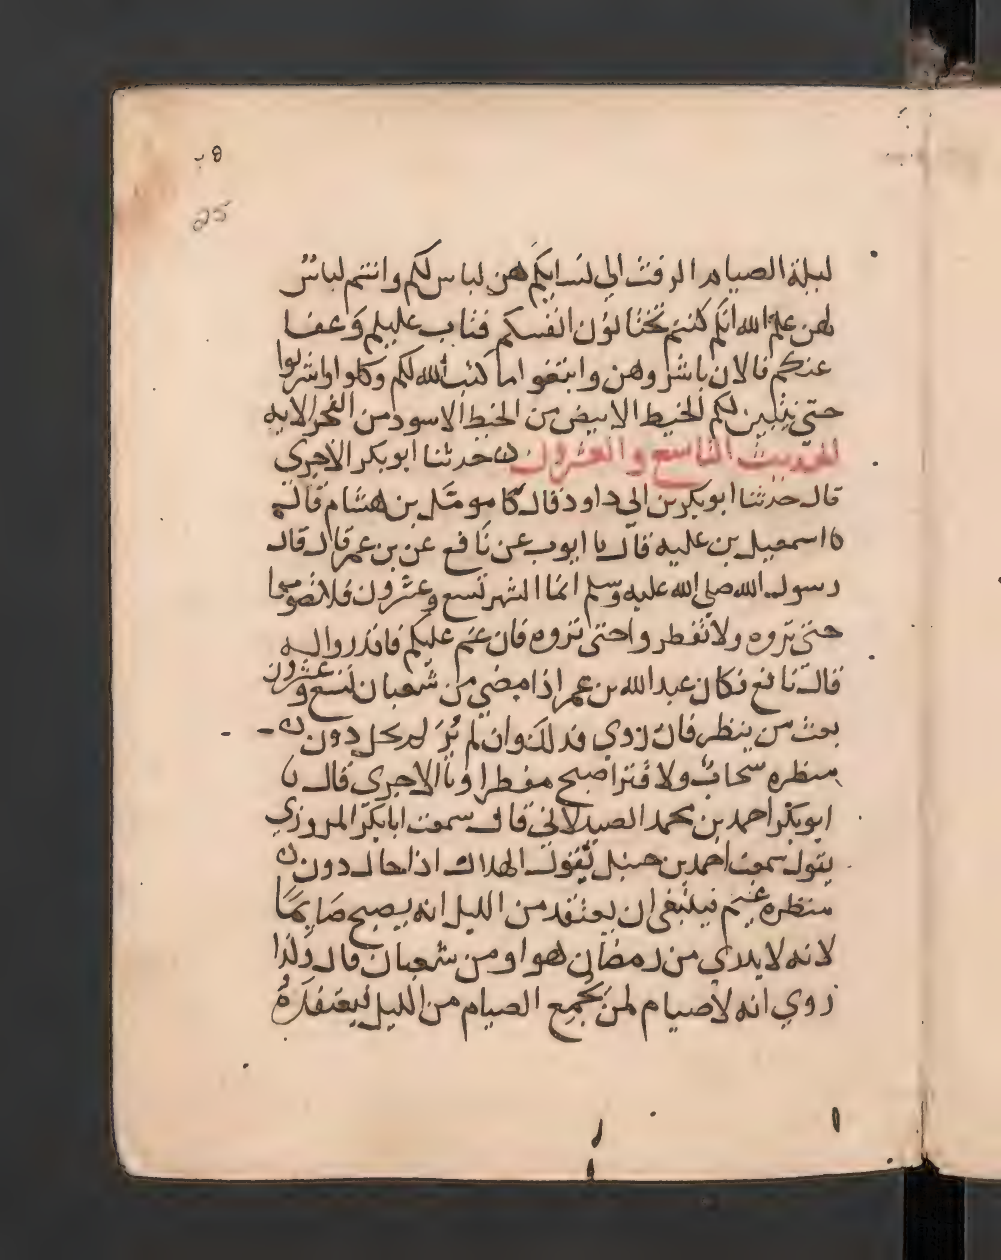 25
ليلة الصيام الرفث الى نسايكم هن لباس لكم وانتم لباس
لهن علم الله انكم كنتم تختانون انفسكم فتاب عليكم وعفا
عنكم فالان باشروهن وابتغوا ما كتب الله لكم وكلوا واشربوا
حتى يتبين لكم الخيط الابيض من الخيط الاسود من الفجر الايه
الحديث التاسع والعشرون حدثنا ابو بكر الاجري
قال حدثنا ابو بكر بن ابي داود قال نا مومل بن هشام قال
نا اسمعيل بن عليه قال نا ايوب عن نافع عن بن عمر قال قال
رسول الله صلى الله عليه وسلم انما الشهر تسع وعشرون فلا تصوموا
حتى تروه ولا تفطروا حتى تروه فان غم عليكم فاقدروا له
قال نافع فكان عبد الله بن عمر اذا مضى من شعبان تسع وعشرون
بعث من ينظر فان روي فذلك وان لم يُرَ لم يحل دون
منظره سحاب ولا قتر اصبح مفطرا ونا الاجري قال نا
ابو بكر احمد بن محمد الصيدلاني قال سمعت ابا بكر المروزي
يقول سمعت احمد بن حنبل يقول الهلال اذا حال دون
منظره غيم فينبغي ان يعتقد من الليل انه يصبح صَايمًا
لانه لا يدري من رمضان هو او من شعبان قال ولذا
روي انه لا صيام لمن يجمع الصيام من الليل ليعتقده